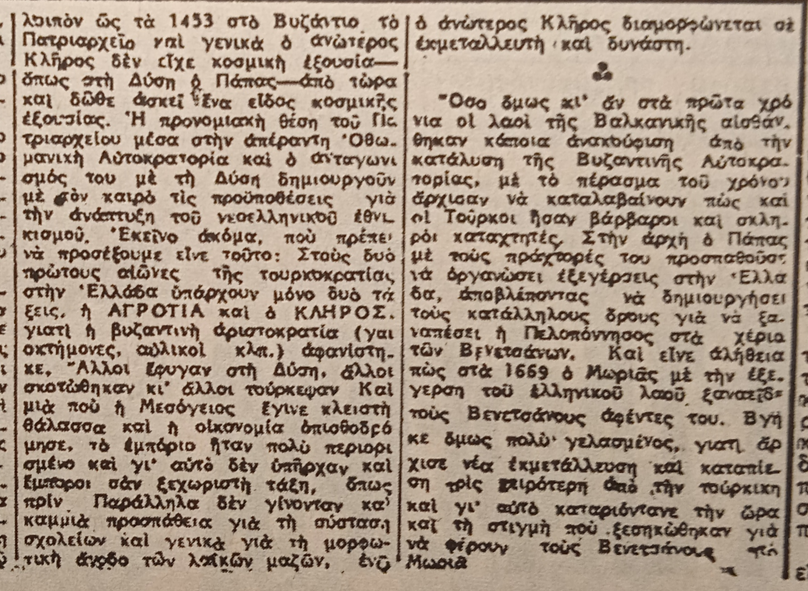 λοιπὸν ὣς τὰ 1453 στὸ Βυζάντιο τὸ
Πατριαρχεῖο καὶ γενικὰ ὁ ἀνώτερος
Κλῆρος δὲν εἶχε κοσμικὴ ἐξουσία—
ὅπως στὴ Δύση ὁ Πάπας—ἀπὸ τώρα
καὶ δῶθε ἀσκεῖ ἕνα εἶδος κοσμικῆς
ἐξουσίας. Ἡ προνομιακὴ θέση τοῦ Πα
τριαρχείου μέσα στὴν ἀπέραντη Ὀθω-
μανικὴ Αὐτοκρατορία καὶ ὁ ἀνταγωνι
σμός του μὲ τὴ Δύση δημιουργοῦν
μὲ τὸν καιρὸ τὶς προϋποθέσεις γιὰ
τὴν ἀνάπτυξη τοῦ νεοελληνικοῦ ἐθνι-
κισμοῦ. Ἐκεῖνο ἀκόμα, ποὺ πρέπει
νὰ προσέξουμε εἶνε τοῦτο: Στοὺς δυὸ
πρώτους αἰῶνες τῆς τουρκοκρατίας
στὴν Ἑλλάδα ὑπάρχουν μόνο δυὸ τά
ξεις, ἡ ΑΓΡΟΤΙΑ καὶ ὁ ΚΛΗΡΟΣ,
γιατὶ ἡ βυζαντινὴ ἀριστοκρατία (γαι
οκτήμονες, αὐλικοὶ κλπ.) ἀφανίστη-
κε. Ἄλλοι ἔφυγαν στὴ Δύση, ἄλλοι
σκοτώθηκαν κι' ἄλλοι τούρκεψαν Καὶ
μιὰ ποὺ ἡ Μεσόγειος ἔγινε κλειστὴ
θάλασσα καὶ ἡ οἰκονομία ὀπισθοδρό
μησε, τὸ ἐμπόριο ἦταν πολὺ περιορι
σμένο καὶ γι' αὐτὸ δὲν ὑπῆρχαν καὶ
ἔμποροι σὰν ξεχωριστὴ τάξη, ὅπως
πρίν Παράλληλα δὲν γίνονταν κα'
καμμιὰ προσπάθεια γιὰ τὴ σύσταση
σχολείων καὶ γενικὰ γιὰ τὴ μορφω-
τικὴ ἄνοδο τῶν λαϊκῶν μαζῶν, ἐνῶ
ὁ ἀνώτερος Κλῆρος διαμορφώνεται σὲ
ἐκμεταλλευτὴ καὶ δυνάστη.
Ὅσο ὅμως κι' ἂν στὰ πρῶτα χρό
νια οἱ λαοὶ τῆς Βαλκανικῆς αἰσθάν-
θηκαν κάποια ἀνακούφιση ἀπὸ τὴν
κατάλυση τῆς Βυζαντινῆς Αὐτοκρα-
τορίας, μὲ τὸ πέρασμα τοῦ χρόνου
ἄρχισαν νὰ καταλαβαίνουν πὼς καὶ
οἱ Τοῦρκοι ἦσαν βάρβαροι καὶ σκλη-
ροὶ καταχτητές. Στὴν ἀρχὴ ὁ Πάπας
μὲ τοὺς πράχτορές του προσπαθοῦσε
νὰ ὀργανώσει ἐξεγέρσεις στὴν Ἑλλά
δα, ἀποβλέποντας νὰ δημιουργήσει
τοὺς κατάλληλους ὅρους γιὰ νὰ ξα-
ναπέσει ἡ Πελοπόννησος στὰ χέρια
τῶν Βενετσάνων. Καὶ εἶνε ἀλήθεια
πὼς στὰ 1669 ὁ Μωριᾶς μὲ τὴν ἐξέ-
γερση τοῦ ἑλληνικοῦ λαοῦ ξαναεῖδε
τοὺς Βενετσάνους ἀφέντες του. Βγῆ
κε ὅμως πολὺ γελασμένος, γιατὶ ἄρ
χισε νέα ἐκμετάλλευση καὶ καταπίε-
ση τρὶς χειρότερη ἀπὸ τὴν τούρκικη
καὶ γι' αὐτὸ καταριόντανε τὴν ὥρα
καὶ τὴ στιγμὴ ποὺ ξεσηκώθηκαν γιὰ
νὰ φέρουν τοὺς Βενετσάνους στὸ
Μωριᾶ